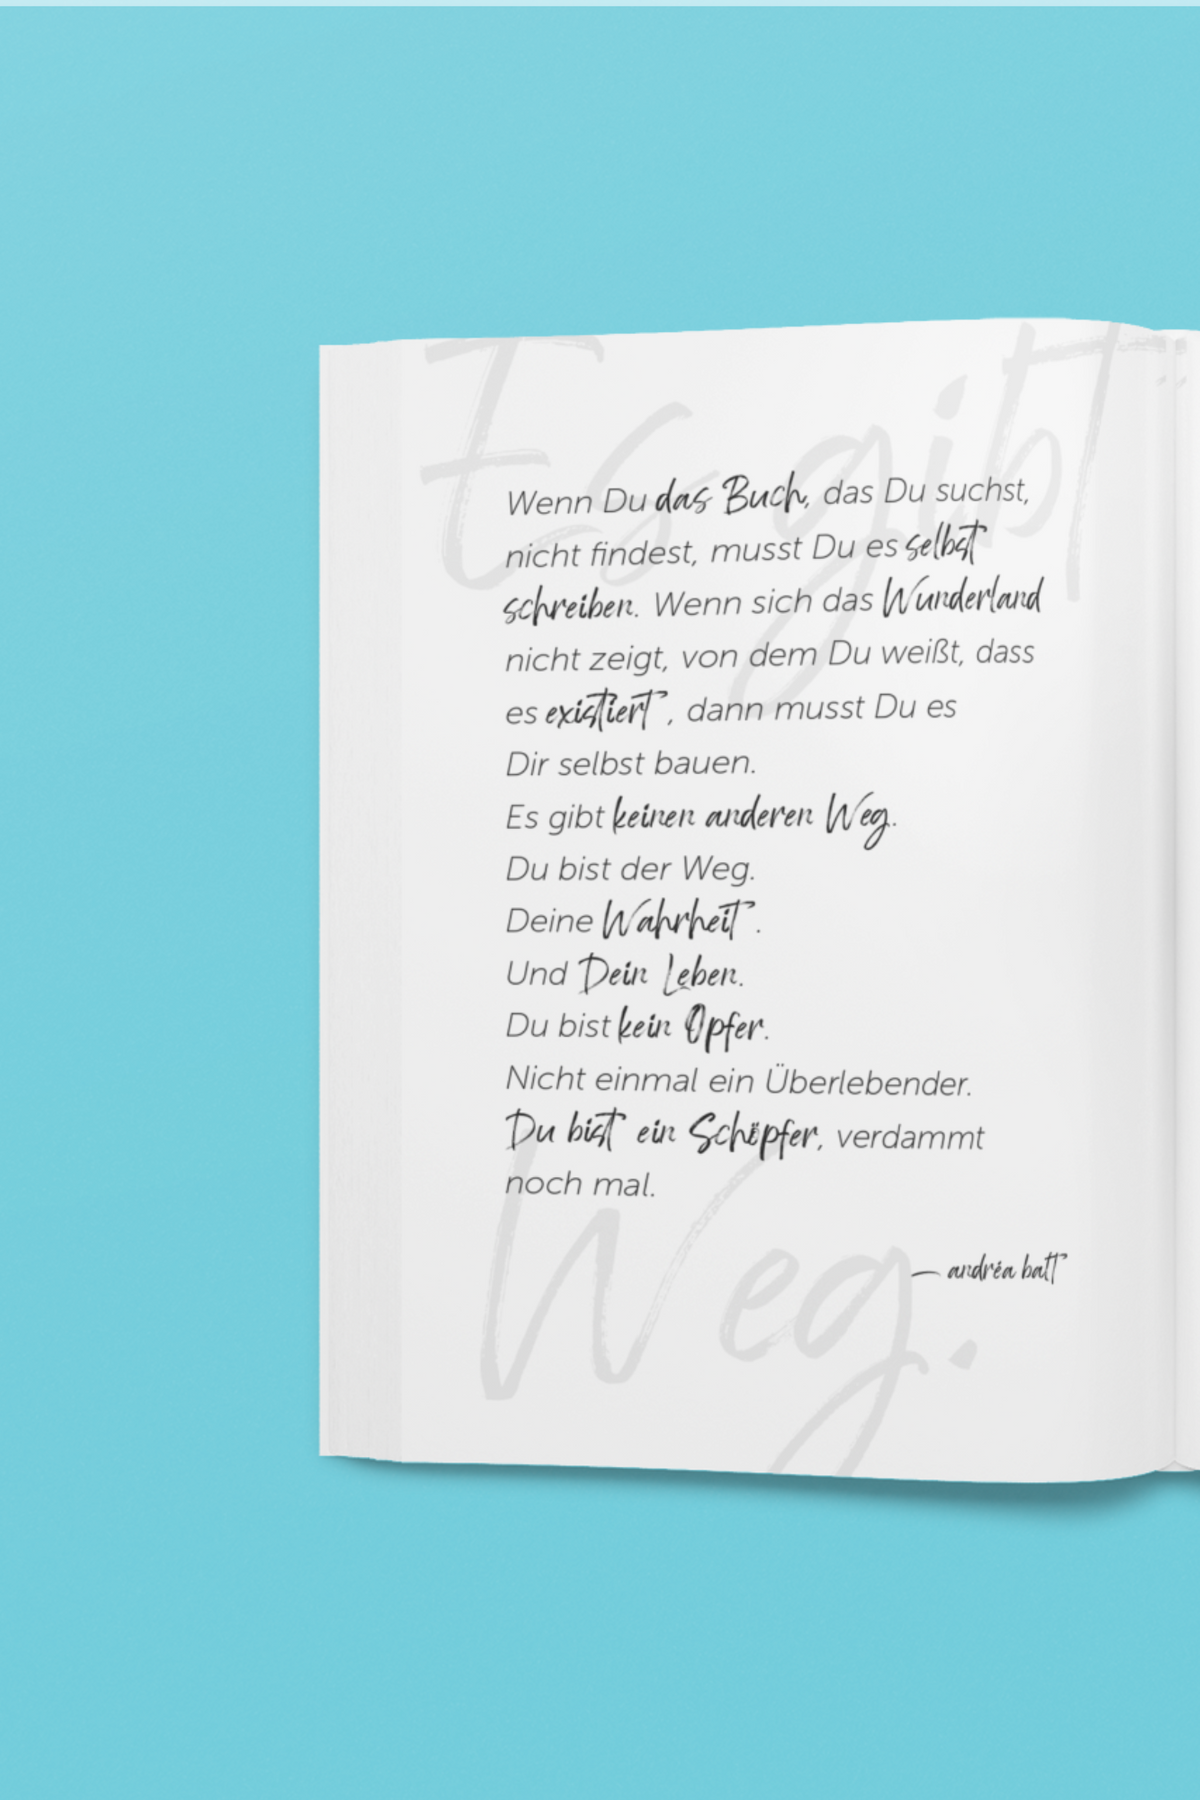 Es gibt
Wenn Du das Buch, das Du suchst,
nicht findest, musst Du es selbst
schreiben. Wenn sich das Wunderland
nicht zeigt, von dem Du weißt, dass
es existiert, dann musst Du es
Dir selbst bauen.
Es gibt keinen anderen Weg.
Du bist der Weg.
Deine Wahrheit.
Und Dein Leben.
Du bist kein Opfer.
Nicht einmal ein Überlebender.
Du bist ein Schöpfer, verdammt
noch mal.
— andréa batt
Weg.